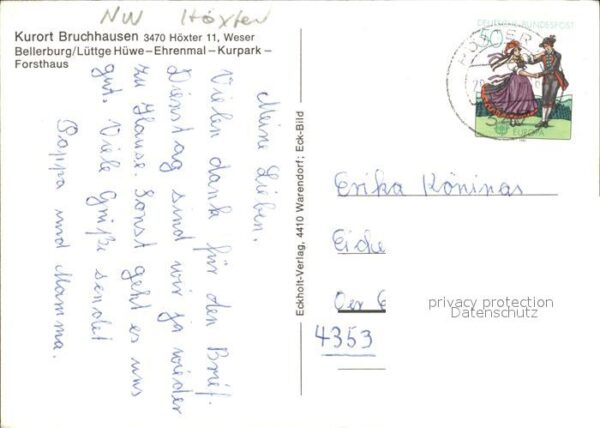 NW Höxter
Kurort Bruchhausen 3470 Höxter 11, Weser
Bellerburg/Lüttge Hüwe–Ehrenmal–Kurpark–
Forsthaus
Meine Lieben.
Vielen dank für den Brief.
Dienstag sind wir ja wieder
zu Hause. Sonst geht es uns
gut. Viele Grüße sendet
Pappa und Mamma.
Eckholt-Verlag, 4410 Warendorf; Eck-Bild
DEUTSCHE BUNDESPOST
50
HÖXTER
EUROPA
Erika Köninas
Eiche
Oer E
4353
privacy protection
Datenschutz